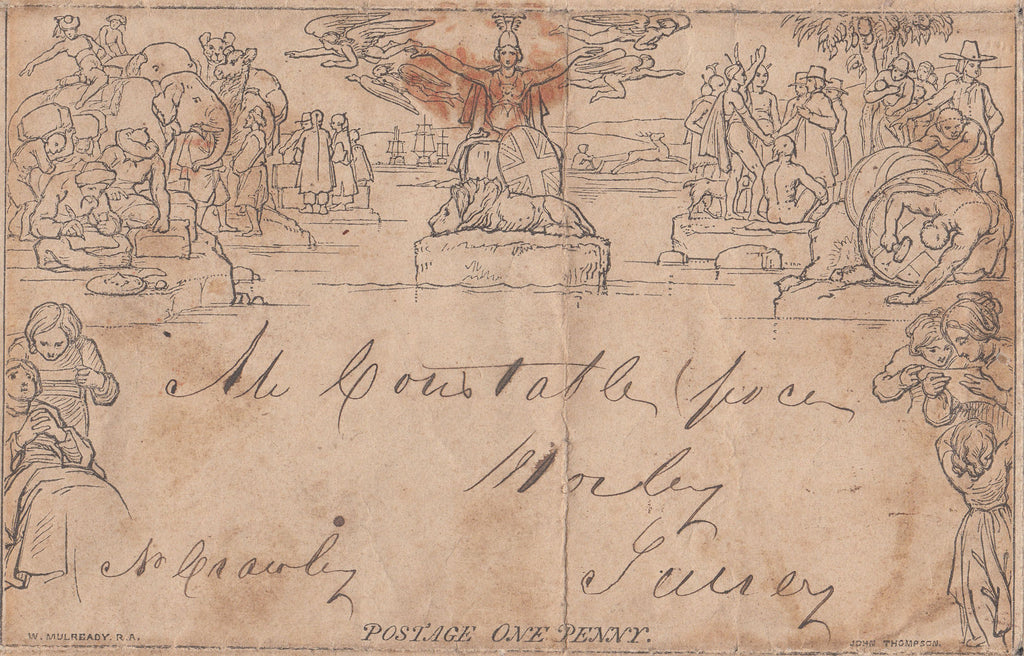 Mr Constable
Horley
Nr Crawley
Surrey
W. MULREADY. R.A.
POSTAGE ONE PENNY.
JOHN THOMPSON.